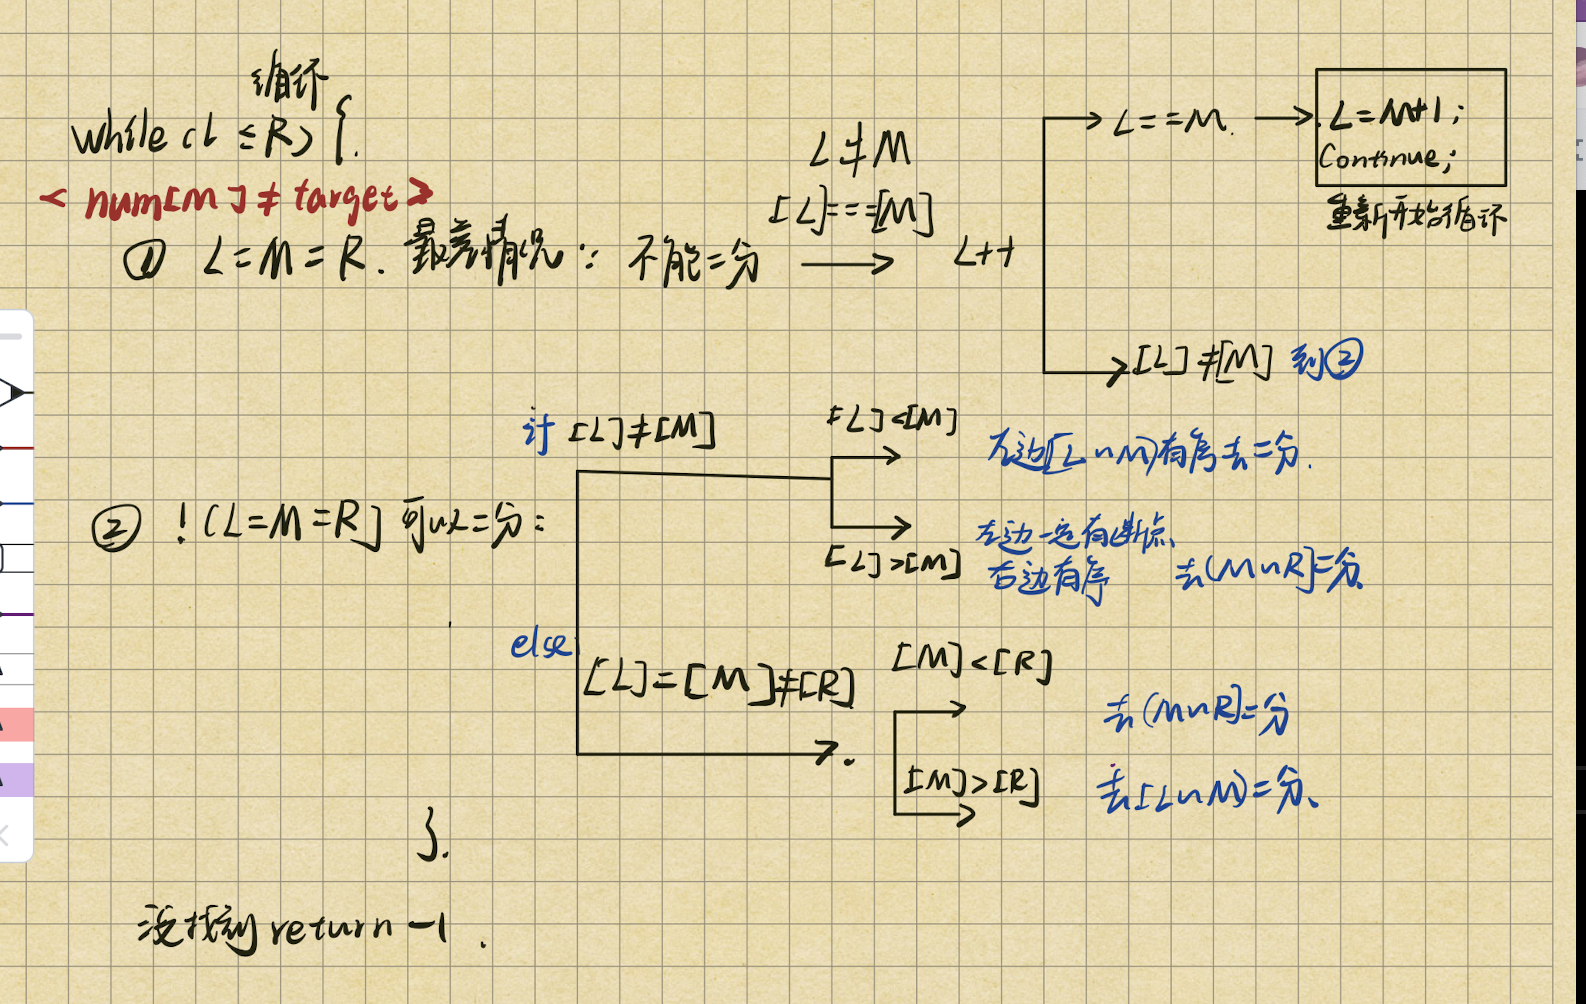 循环
while (L ≤ R) {
< num[M] ≠ target >
① L = M = R. 最差情况: 不能二分
L ≠ M
[L] === [M]
L++
L == M.
L = M+1;
Continue;
重新开始循环
[L] ≠ [M] 到②
② !(L = M = R] 可以二分:
[L] ≠ [M]
[L] < [M]
左边[L~M)有序去二分.
[L] > [M]
左边一定有断点
右边有序 去(M~R]二分
else
[L] = [M] ≠ [R]
[M] < [R]
去(M~R]二分
[M] > [R]
去[L~M)二分、
}.
没找到 return -1.